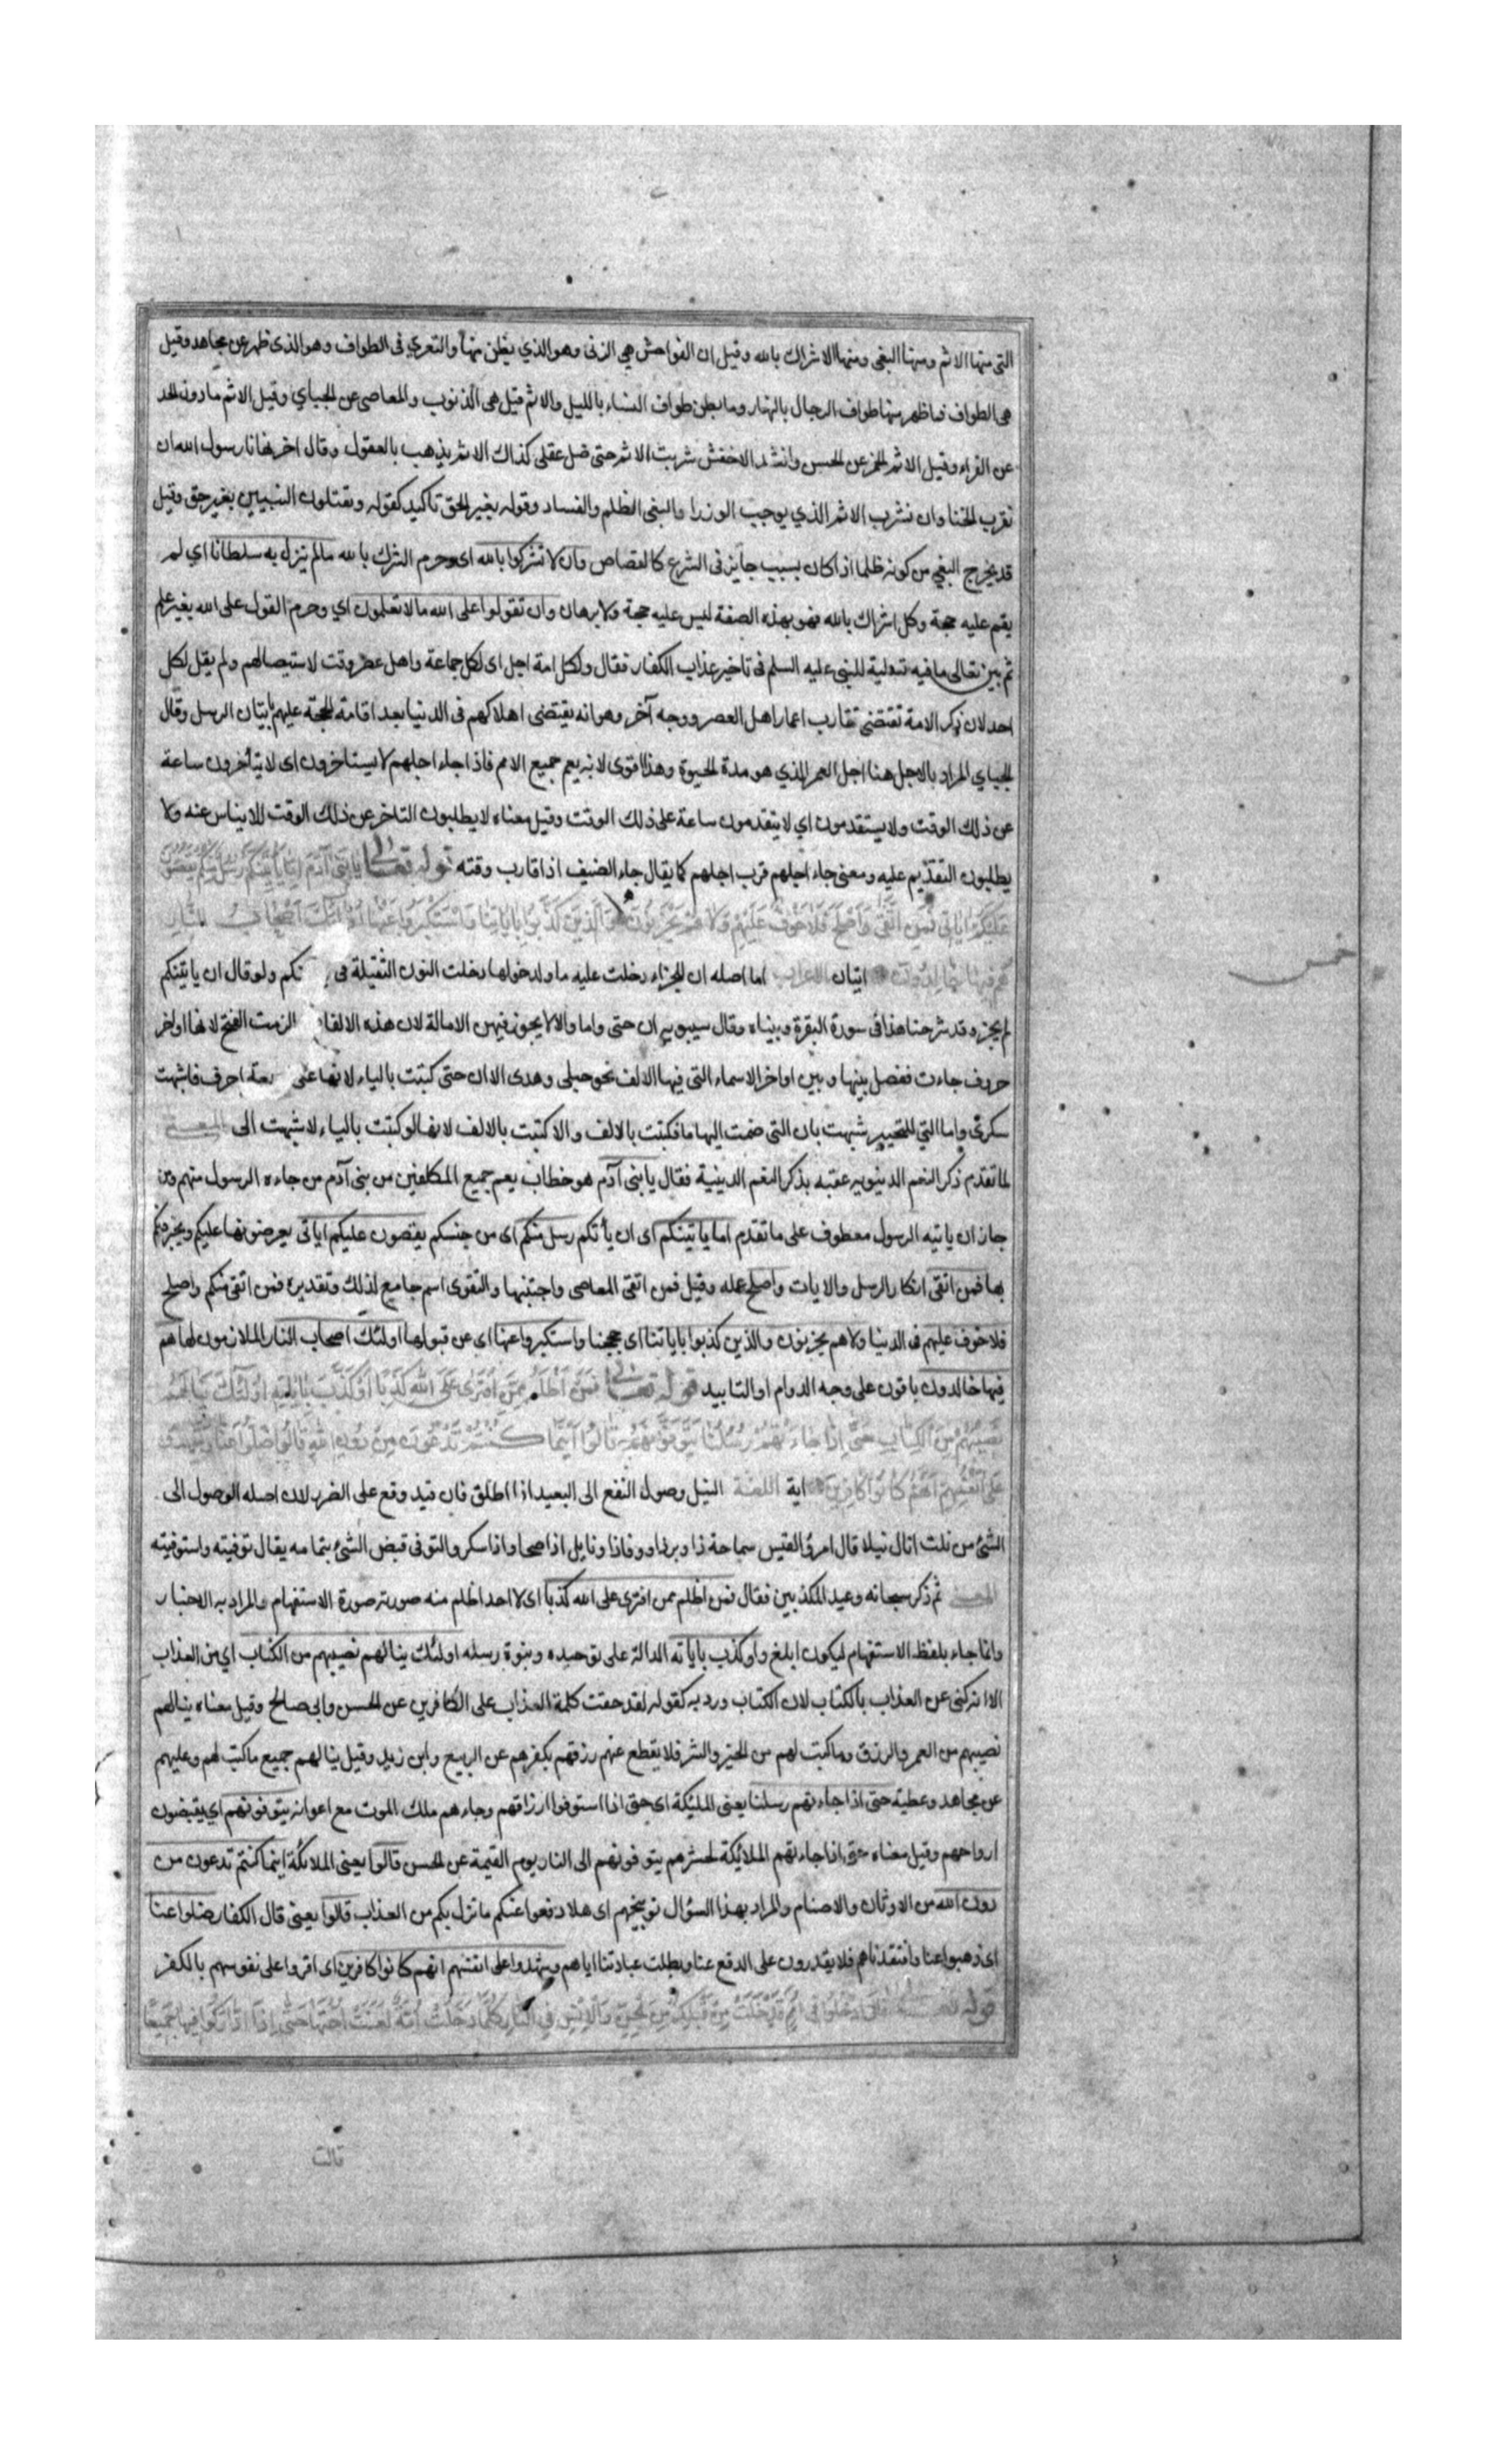 التى منها الاثم ومنها البغى ومنها الاشراك بالله وقيل ان الفواحش هي الزنى وهو الذي بطن منها والتعري فى الطواف وهو الذى ظهر عن مجاهد وقيل
هى الطواف فما ظهر منها طواف الرجال بالنهار وما بطن طواف النساء بالليل والاثم قيل هى الذنوب والمعاصى عن الجباي وقيل الاثم ما دون الحد
عن الفراء وقيل الاثم الخمر عن الحسن وانشد الاخفش شربت الاثم حتى ضل عقلى كذاك الاثم يذهب بالعقول وقال اخر نهانا رسول الله ان
نقرب الخنا وان نشرب الاثم الذي يوجب الوزرا والبغى الظلم والفساد وقوله بغير الحق تاكيد كقوله ويقتلون النبيين بغير حق وقيل
قد يخرج البغي من كونه ظلما اذا كان بسبب جايز فى الشرع كالقصاص وان لا تشركوا بالله اى وحرم الشرك بالله ما لم ينزل به سلطانا اي لم
يقم عليه حجة وكل اشراك بالله فهو بهذه الصفة ليس عليه حجة ولا برهان وان تقولوا على الله مالا تعلمون اي وحرم القول على الله بغير علم
ثم بين تعالى ما فيه تسلية للنبى عليه السلم فى تاخير عذاب الكفار فقال ولكل امة اجل اى لكل جماعة واهل عصر وقت لاستيصالهم ولم يقل لكل
احد لان ذكر الامة تقتضى تقارب اعمار اهل العصر ووجه آخر وهو انه يقتضى اهلاكهم فى الدنيا بعد اقامة الحجة عليهم باتيان الرسل وقال
الجباي المراد بالاجل هنا اجل العمر الذي هو مدة الحيوة وهذا اقوى لانه يعم جميع الامم فاذا جاء اجلهم لا يستاخرون اى لا يتأخرون ساعة
عن ذلك الوقت ولا يستقدمون اي لا يتقدمون ساعة على ذلك الوقت وقيل معناه لا يطلبون التاخر عن ذلك الوقت للاياس عنه ولا
يطلبون التقديم عليه ومعنى جاء اجلهم قرب اجلهم كما يقال جاء الضيف اذا قارب وقته قوله تعالى يا بَنى آدَم اِمّا يَأتِيَنّكُم رُسُلٌ مِنكُم يَقُصّونَ
عَلَيكُم اياتى فَمَنِ اتَّقى وَاَصلَحَ فَلا خَوفٌ عَلَيهِم وَلا هُم يَحزَنُونَ وَالَّذينَ كَذَّبُوا بِاياتِنا وَاستَكبَرُوا عَنها اُولئِكَ اَصحابُ النّارِ
هُم فيها خالِدُونَ ايتان الاعراب اما اصله ان الجزاء دخلت عليه ما ولدخولها دخلت النون الثقيلة فى تكم ولو قال ان ياتينكم
لم يجز وقد شرحنا هذا فى سورة البقرة وبيناه وقال سيبويه ان حتى واما والا لا يجوز فيهن الامالة لان هذه الالفا الزمت الفتح لانها اواخر
حروف جاءت ففصل بينها وبين اواخر الاسماء التى فيها الالف نحو حبلى وهدى الا ان حتى كتبت بالياء لانها على بعة احرف فاشبهت
سكرى واما التي للتخيير شبهت بان التى ضمت اليها ما فكتبت بالالف والا كتبت بالالف لانها لو كتبت بالياء لاشبهت الى المعنى
لما تقدم ذكر النعم الدنيويه عقبه بذكر النعم الدينية فقال يا بنى آدم هو خطاب يعم جميع المكلفين من بنى آدم من جاءه الرسول منهم ومن
جاز ان ياتيه الرسول معطوف على ما تقدم اما ياتينكم اى ان يأتكم رسل منكم اى من جنسكم يقصون عليكم اياتى يعرضونها عليكم ويخبرونكم
بها فمن اتقى انكار الرسل والايات واصلح عمله وقيل فمن اتقى المعاصى واجتنبها والتقوى اسم جامع لذلك وتقديره فمن اتقى منكم واصلح
فلا خوف عليهم فى الدنيا ولا هم يحزنون والذين كذبوا باياتنا اى حججنا واستكبروا عنها اى عن قبولها اولئك اصحاب النار الملازمون لها هم
فيها خالدون باقون على وجه الدوام او التابيد قوله تعالى فَمَن اَظلَمُ مِمَّنِ افتَرى عَلَى اللهِ كَذِبًا اَو كَذَّبَ بِاياتِهِ اُولئِكَ يَنالُهُم
نَصيبُهُم مِنَ الكِتابِ حَتّى اِذا جاءَتهُم رُسُلُنا يَتَوَفَّونَهُم قالُوا اَينَما كُنتُم تَدعُونَ مِن دُونِ اللهِ قالُوا ضَلُّوا عَنّا وَشَهِدُوا
عَلى اَنفُسِهِم اَنَّهُم كانُوا كافِرينَ اية اللغة النيل وصول النفع الى البعيد اذا اطلق فان قيد وقع على الضر لان اصله الوصول الى
الشئ من نلت انال نيلا قال امرؤ القيس سماحة ذا وبر ذا ووفا ذا ونايل ذا اذا صحا واذا سكر والتوفى قبض الشئ بتمامه يقال توفيته واستوفيته
المعنى ثم ذكر سبحانه وعيد المكذبين فقال فمن اظلم ممن افترى على الله كذبا اى لا احد اظلم منه صورته صورة الاستفهام والمراد به الاخبار
وانما جاء بلفظ الاستفهام ليكون ابلغ واو كذب باياته الدالة على توحيده ونبوة رسله اولئك ينالهم نصيبهم من الكتاب اي من العذاب
الا انه كنى عن العذاب بالكتاب لان الكتاب ورد به كقوله لقد حقت كلمة العذاب على الكافرين عن الحسن وابى صالح وقيل معناه ينالهم
نصيبهم من العمر والرزق وما كتب لهم من الخير والشر فلا يقطع عنهم رزقهم بكفرهم عن الربيع وابن زيد وقيل ينالهم جميع ما كتب لهم وعليهم
عن مجاهد وعطية حتى اذا جاءتهم رسلنا يعنى المليكة اى حتى اذا استوفوا ارزاقهم وجاءهم ملك الموت مع اعوانه يتوفونهم اي يقبضون
ارواحهم وقيل معناه حتى اذا جاءتهم الملائكة لحشرهم يتوفونهم الى النار يوم القيمة عن الحسن قالوا يعنى الملائكة اينما كنتم تدعون من
دون الله من الاوثان والاصنام والمراد بهذا السؤال توبيخهم اى هلا دفعوا عنكم ما نزل بكم من العذاب قالوا يعنى قال الكفار ضلوا عنا
اى ذهبوا عنا وافتقدناهم فلا يقدرون على الدفع عنا وبطلت عبادتنا اياهم وشهدوا على انفسهم انهم كانوا كافرين اى اقروا على نفوسهم بالكفر
قوله تعالى قالَ ادخُلُوا فى اُمَمٍ قَد خَلَت مِن قَبلِكُم مِنَ الجِنِّ وَالاِنسِ فِى النّارِ كُلَّما دَخَلَت اُمَّةٌ لَعَنَت اُختَها حَتّى اِذَا ادّارَكُوا فيها جَميعًا
قالت
خمس